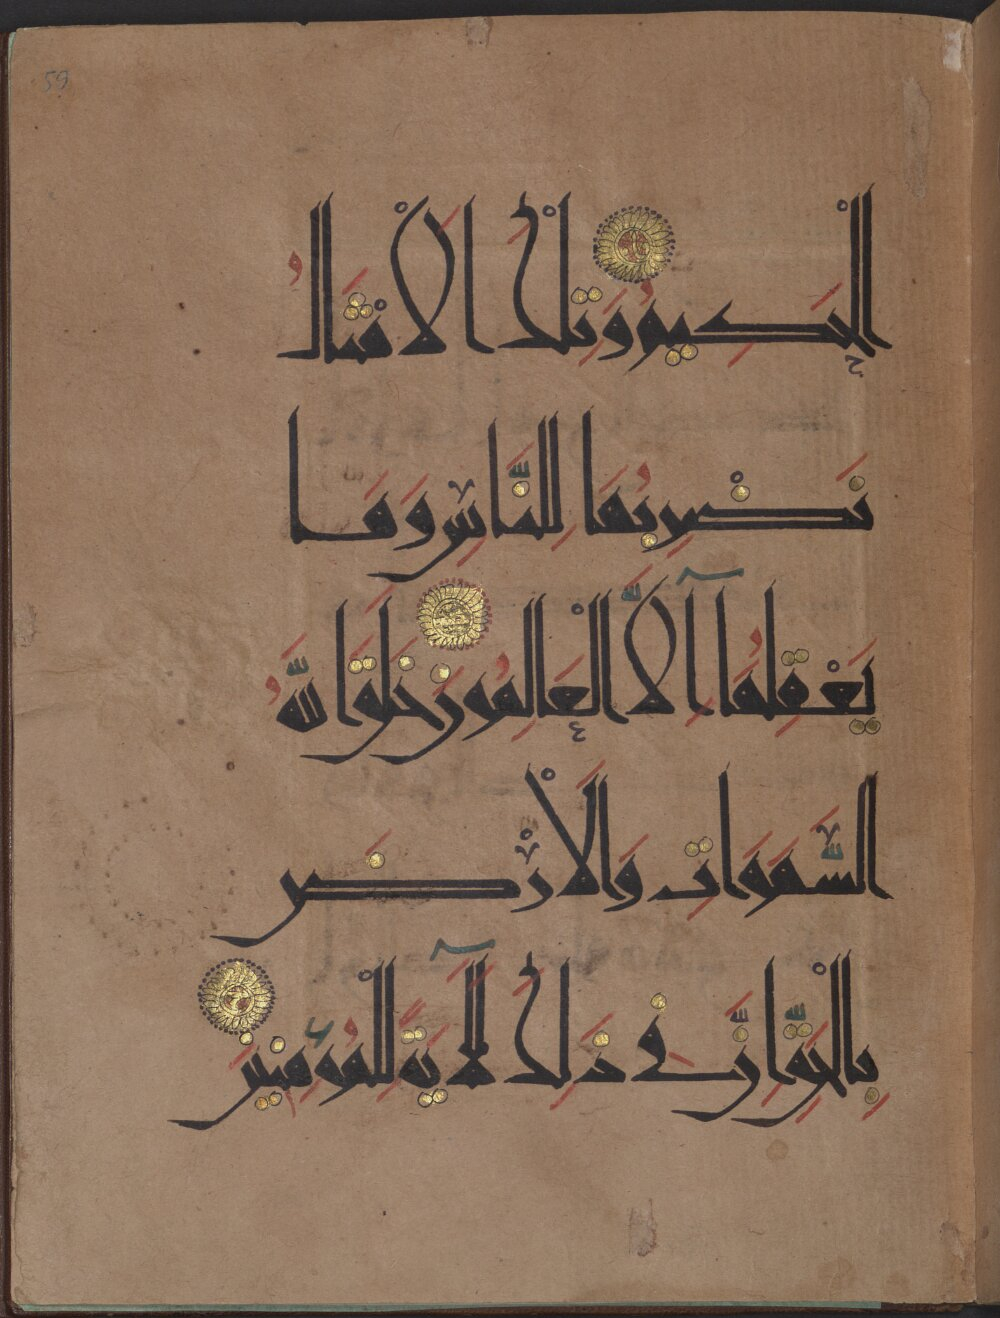 59
الْحَكِيمُ وَتِلْكَ الْأَمْثَالُ
نَضْرِبُهَا لِلنَّاسِ وَمَا
يَعْقِلُهَآ إِلَّا الْعَالِمُونَ خَلَقَ اللَّهُ
السَّمَوَاتِ وَالْأَرْضَ
بِالْحَقِّ إِنَّ فِي ذَلِكَ لَآيَةً لِلْمُؤْمِنِينَ